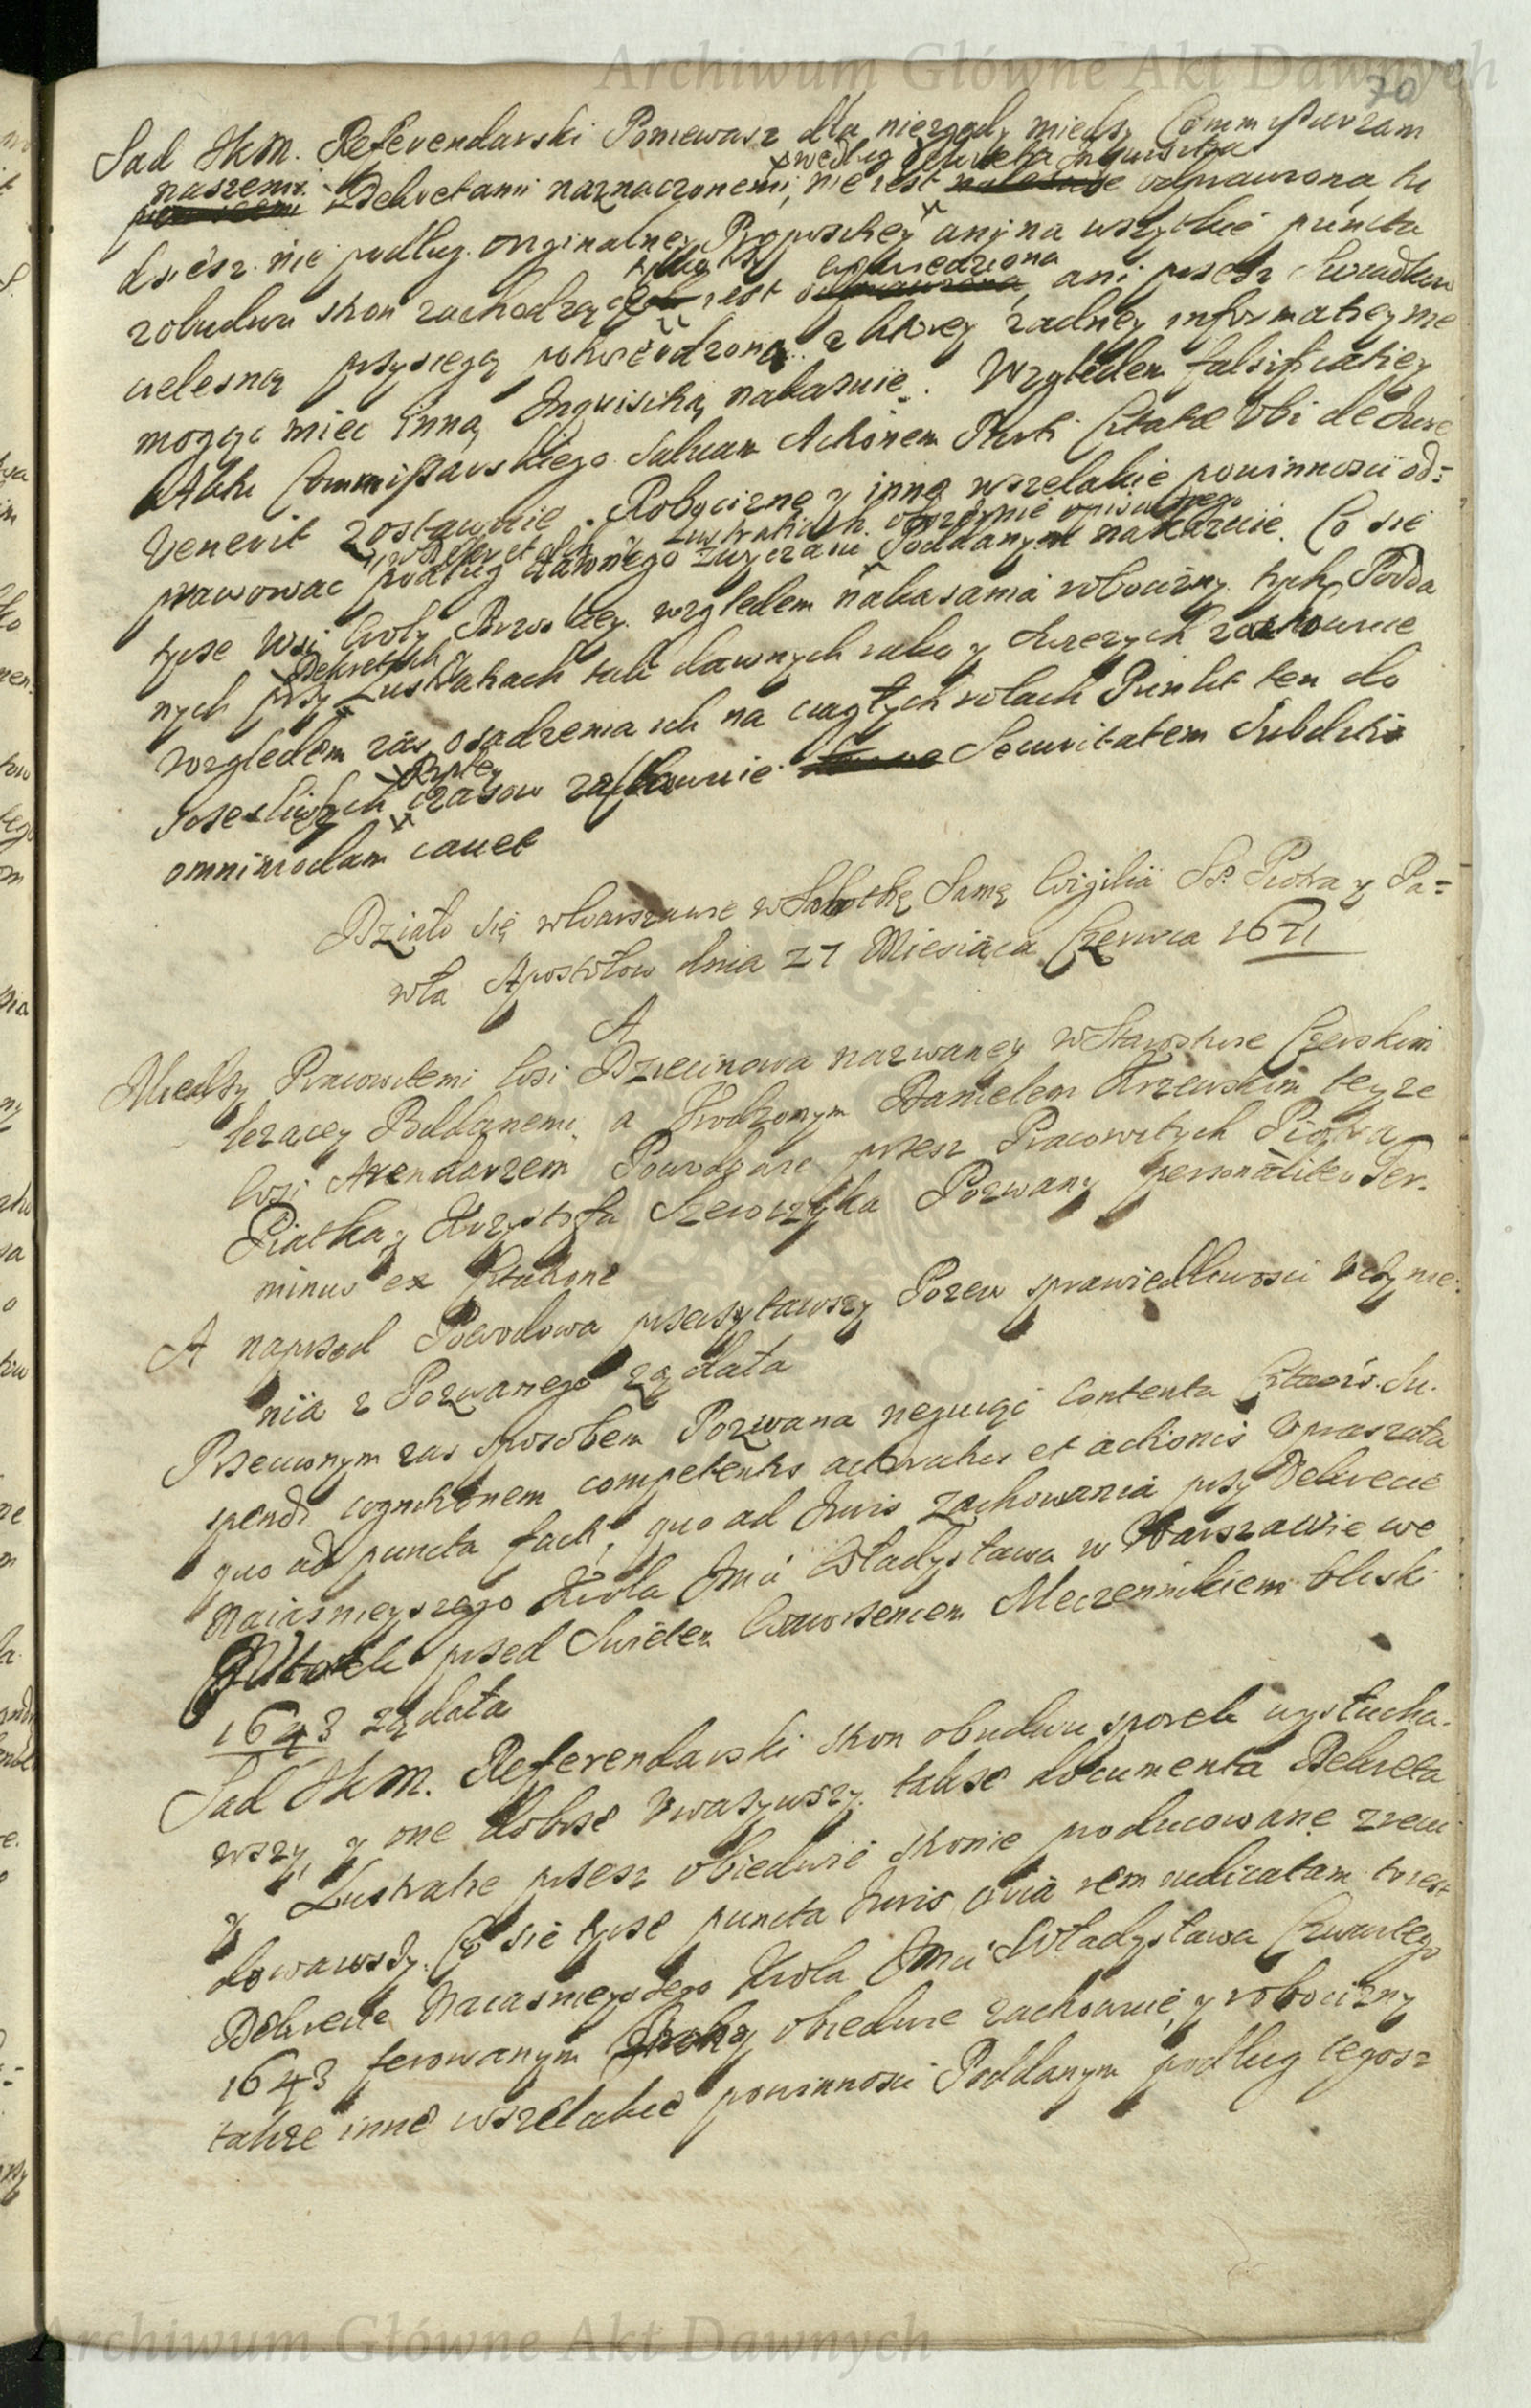 Archiwum Główne Akt Dawnych
70
Sad JKM. Referendarski Poniewasz dla niezgody miedzy Commissarzami
według Dekretu Inquisitia
naszemi Dekretami naznaczonemi, nie iest odprawiona, tu
dziesz nie podług orginalney Propositiey any na wszytkie puncta
wywiedziona
zobudwu stron zachodzące iest, ani przesz Swiadkow
cielesną przysięgą potwierdzona z ktorey zadney informatiey nie
mogąc miec inną Inquisitią nakazuie. Względem falsificatiey
Aktu Commissarskiego Saluam Actionem Parti Citatae Vbi de Jure
Venerit zostawuie. Robociznę y inne wszelakie powinnosci od=
w Dekretach y Lustratiach obszernie opisanego
prawowac podług dawnego zwyczaiu Poddanym nakazuie. Co się
tycze Wsi Woly względem nakazania robocizny tych Podda
Dekretach y
nych przy Lustratiach tak dawnych iako y swiezych zachowuie
Względem zas osadzenia ich na ciągłych rolach Punkt ten do
Rzptey
sczesliwszych czasow zachowuie Securitatem Subditis
omnimodam cauet
Działo się w Warszawie w Sobotkę Samę Wigilią SS. Piotra y Pa=
wła Apostołow dnia 27 Miesiąca Czerwca 1671
A
Miedzy Pracowitemi Wsi Dziecinowa nazwaney w Starostwie Czerskim
lezącey Poddanemi, a Urodzonym Danielem Krzewskim teyze
Wsi Arendarzem Powodowie przesz Pracowitych Piotra
Piatka y Krzysztofa Szewczyka Pozwany personaliter Ter=
minus ex Citatione
A naprzod Powodowa przeczytawszy Pozew sprawiedliwosci Vczynie=
nia z Pozwanego ządała
Przeciwnym zas sposobem Pozwana neguiąc Contenta Citaōis Su=
spendi cognitionem competentis actoratus et actionis Vpraszała
quo ad puncta facti, quo ad Iuris zachowania przy Dekrecie
Naiasnieyszego Krola Jmći Władysława w Warszawie we
Wtorek przed Swiętem Wawrzencem Męczennikiem bliski
1643 ządała
Sad JKM. Referendarski stron obudwu sporek wysłucha=
wszy, y one dobrze Vwazywszy, takze documenta Dekreta
y Lustratie przesz obiedwie stronie producowane zrewi
dowawszy. Co się tycze puncta Iuris quia rem iudicatam to iest
Dekrecie Naiasnieyszego Krola Jmći Władysława Czwartego
1643 ferowanym Strony obiedwie zachowuie, y robocizny
takze inne wszelakie powinnosci Poddanym podług tegosz
Archiwum Główne Akt Dawnych